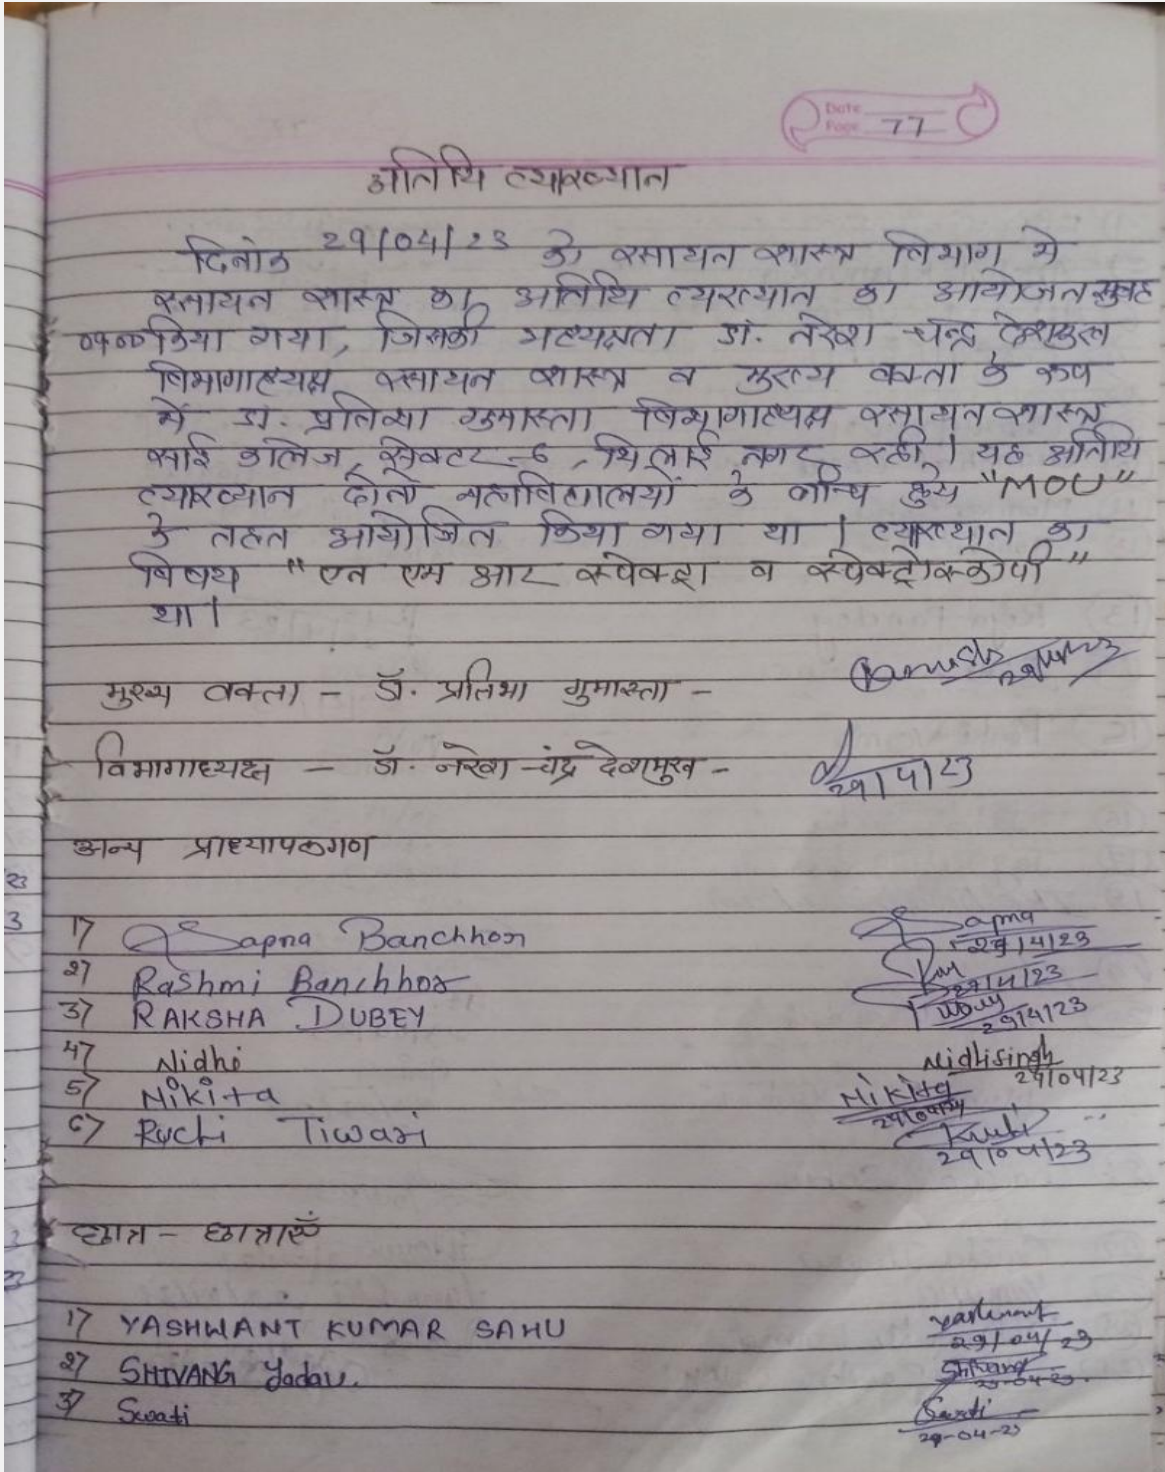 Date
Page 77
अतिथि व्याख्यान
दिनांक 29/04/23 को रसायन शास्त्र विभाग में
रसायन शास्त्र का अतिथि व्याख्यान का आयोजन सुबह
09:00 किया गया, जिसकी अध्यक्षता डॉ. नरेश चन्द्र देशमुख
विभागाध्यक्ष रसायन शास्त्र व मुख्य वक्ता के रूप
में डॉ. प्रतिभा गुमास्ता विभागाध्यक्ष रसायन शास्त्र
साई कालेज सेक्टर-6, भिलाई नगर रही। यह अतिथि
व्याख्यान दोनो महाविद्यालयों के बीच हुये "MOU"
के तहत आयोजित किया गया था। व्याख्यान का
विषय "एन एम आर स्पेक्ट्रा व स्पेक्ट्रोस्कोपी"
था।
मुख्य वक्ता - डॉ. प्रतिभा गुमास्ता - 29/4/23
विभागाध्यक्ष - डॉ. नरेश चंद्र देशमुख - 29/4/23
अन्य प्राध्यापकगण
23
3
1) Sapna Banchhor Sapna 29/4/23
2) Rashmi Banchhor 29/4/23
3) RAKSHA DUBEY 29/4/23
4) Nidhi Nidhisingh 29/04/23
5) Nikita Nikita
6) Ruchi Tiwari 29/04/23
छात्र - छात्राएँ
23
1) YASHWANT KUMAR SAHU Yashwant 29/04/23
2) SHIVANG Yadav. Shivang
3) Swati Swati 29-04-23